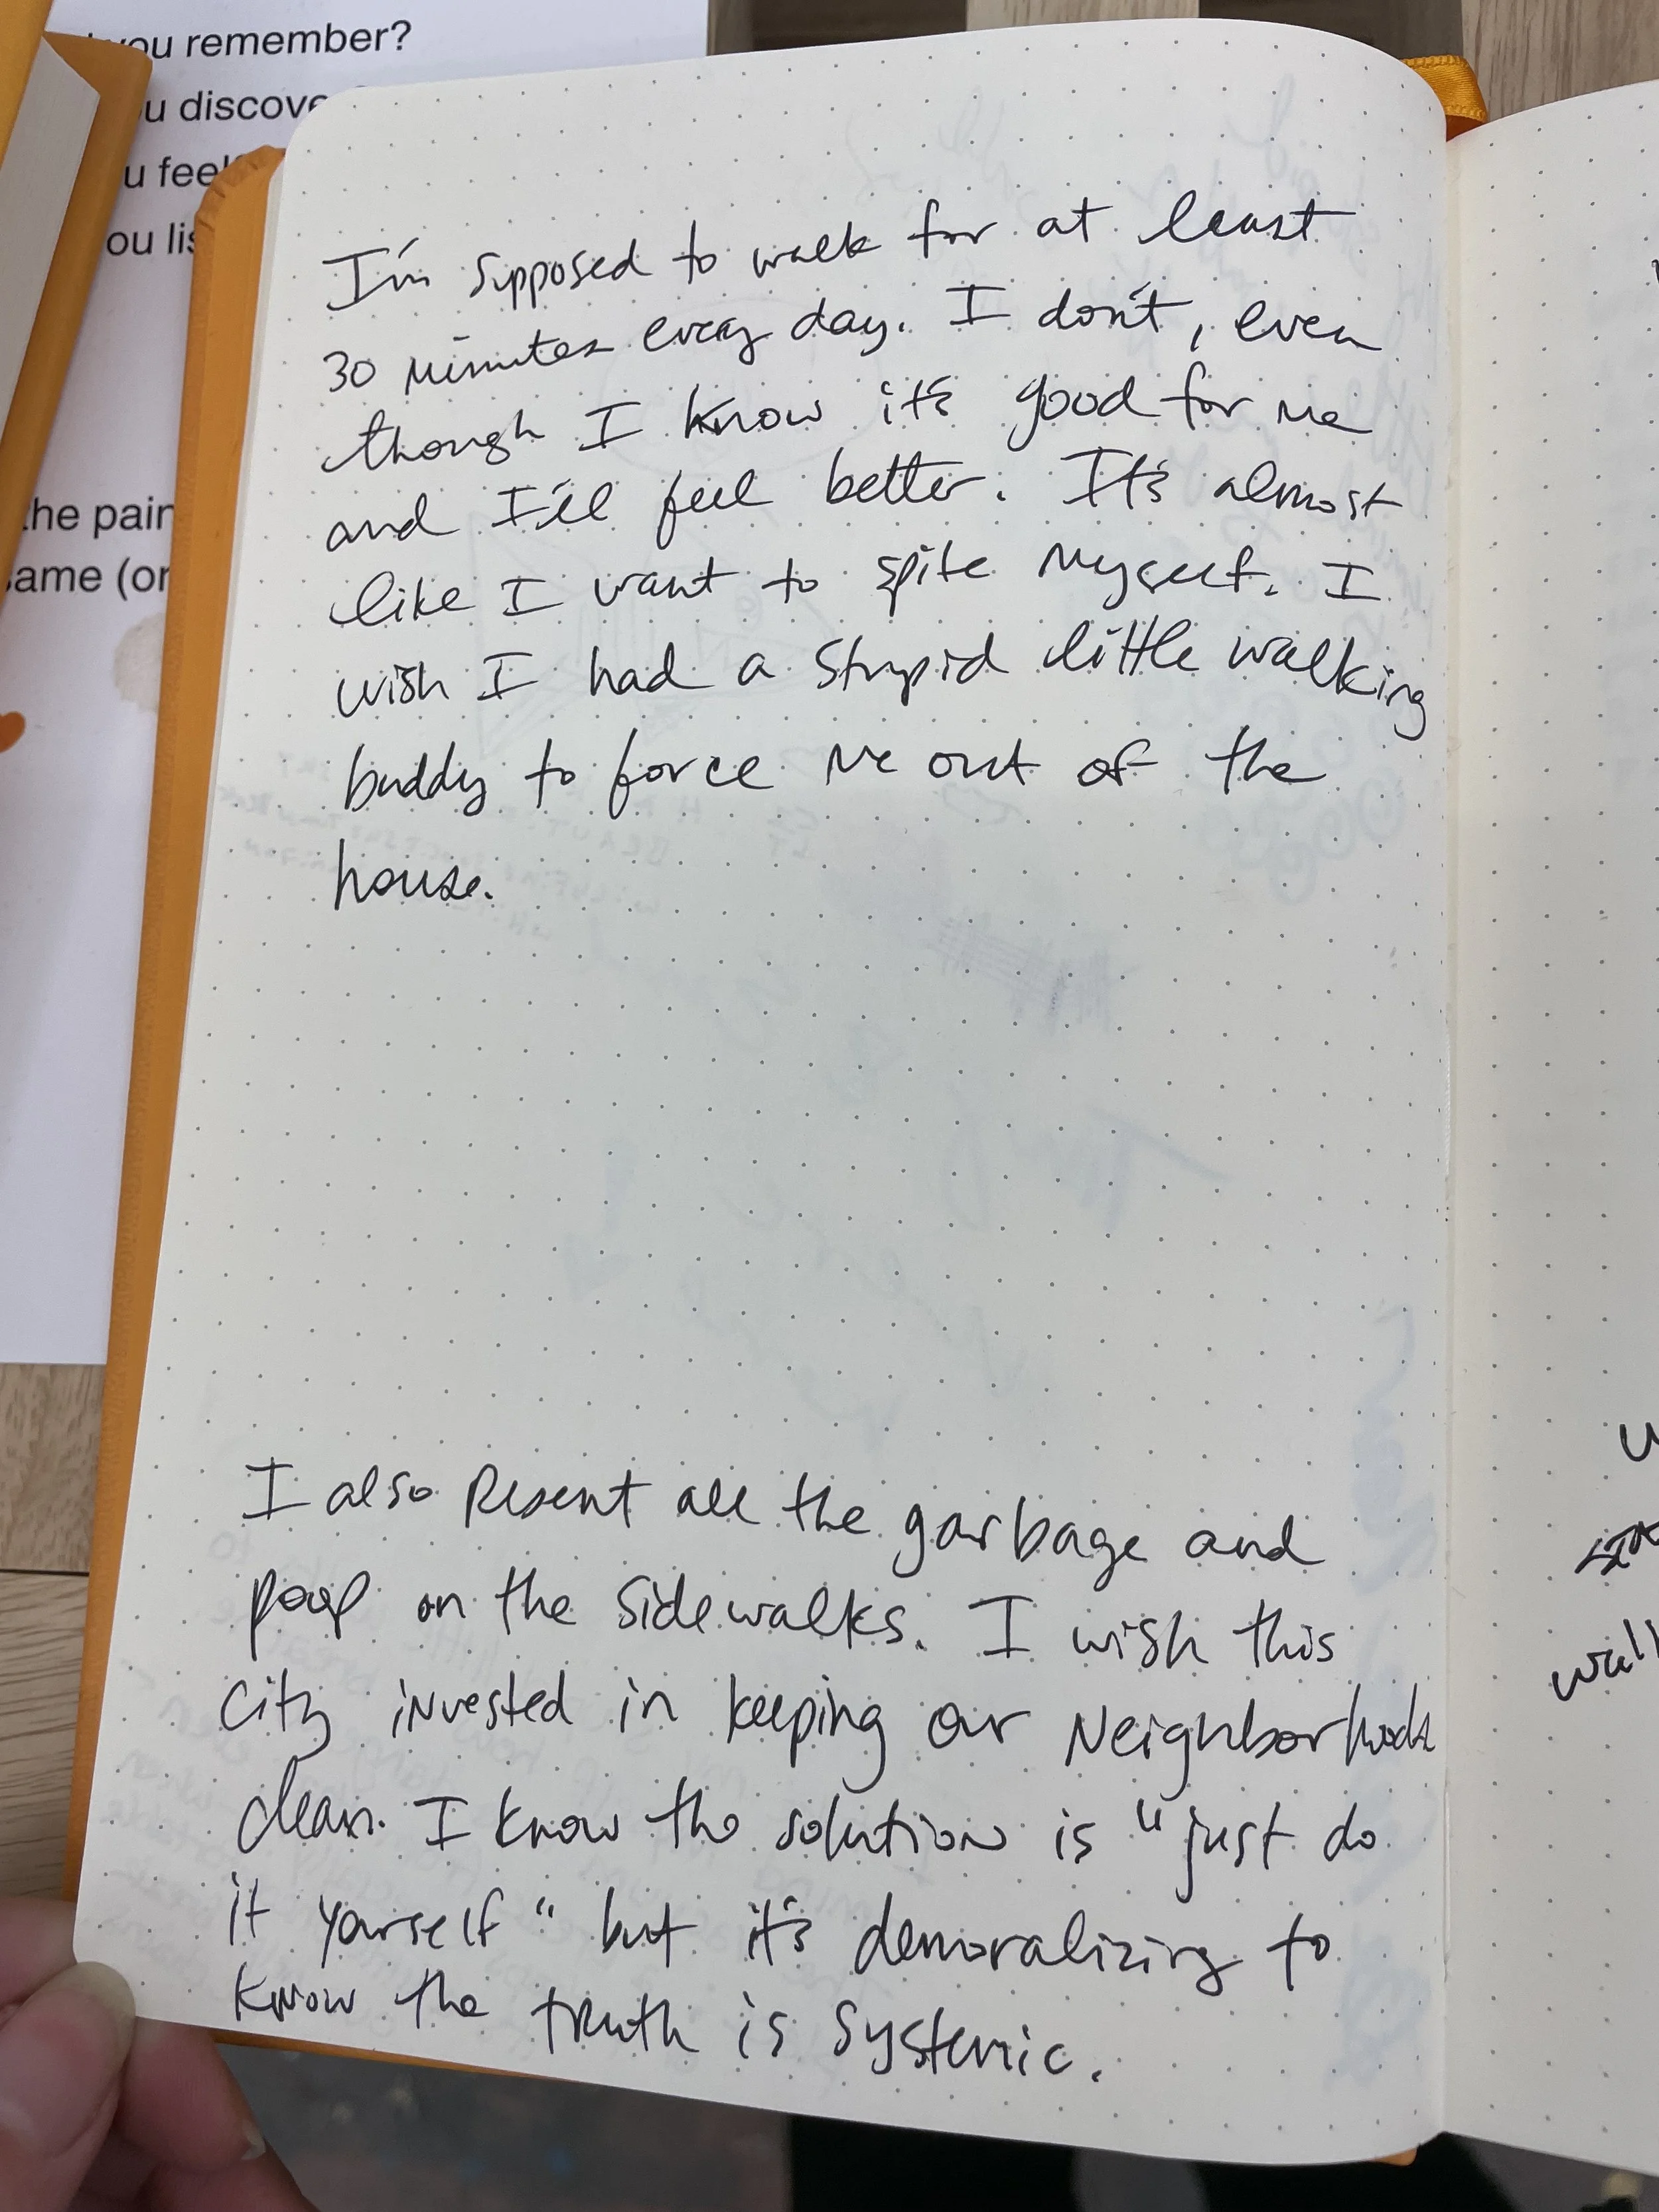 you remember?
u discove
u feel
ou lis
the pain
same (or
I'm supposed to walk for at least
30 minutes every day. I don't, even
though I know it's good for me
and I'll feel better. It's almost
like I want to spite myself. I
wish I had a stupid little walking
buddy to force me out of the
house.
I also resent all the garbage and
poop on the sidewalks. I wish this
city invested in keeping our neighborhoods
clean. I know the solution is "just do
it yourself" but it's demoralizing to
know the truth is systemic.